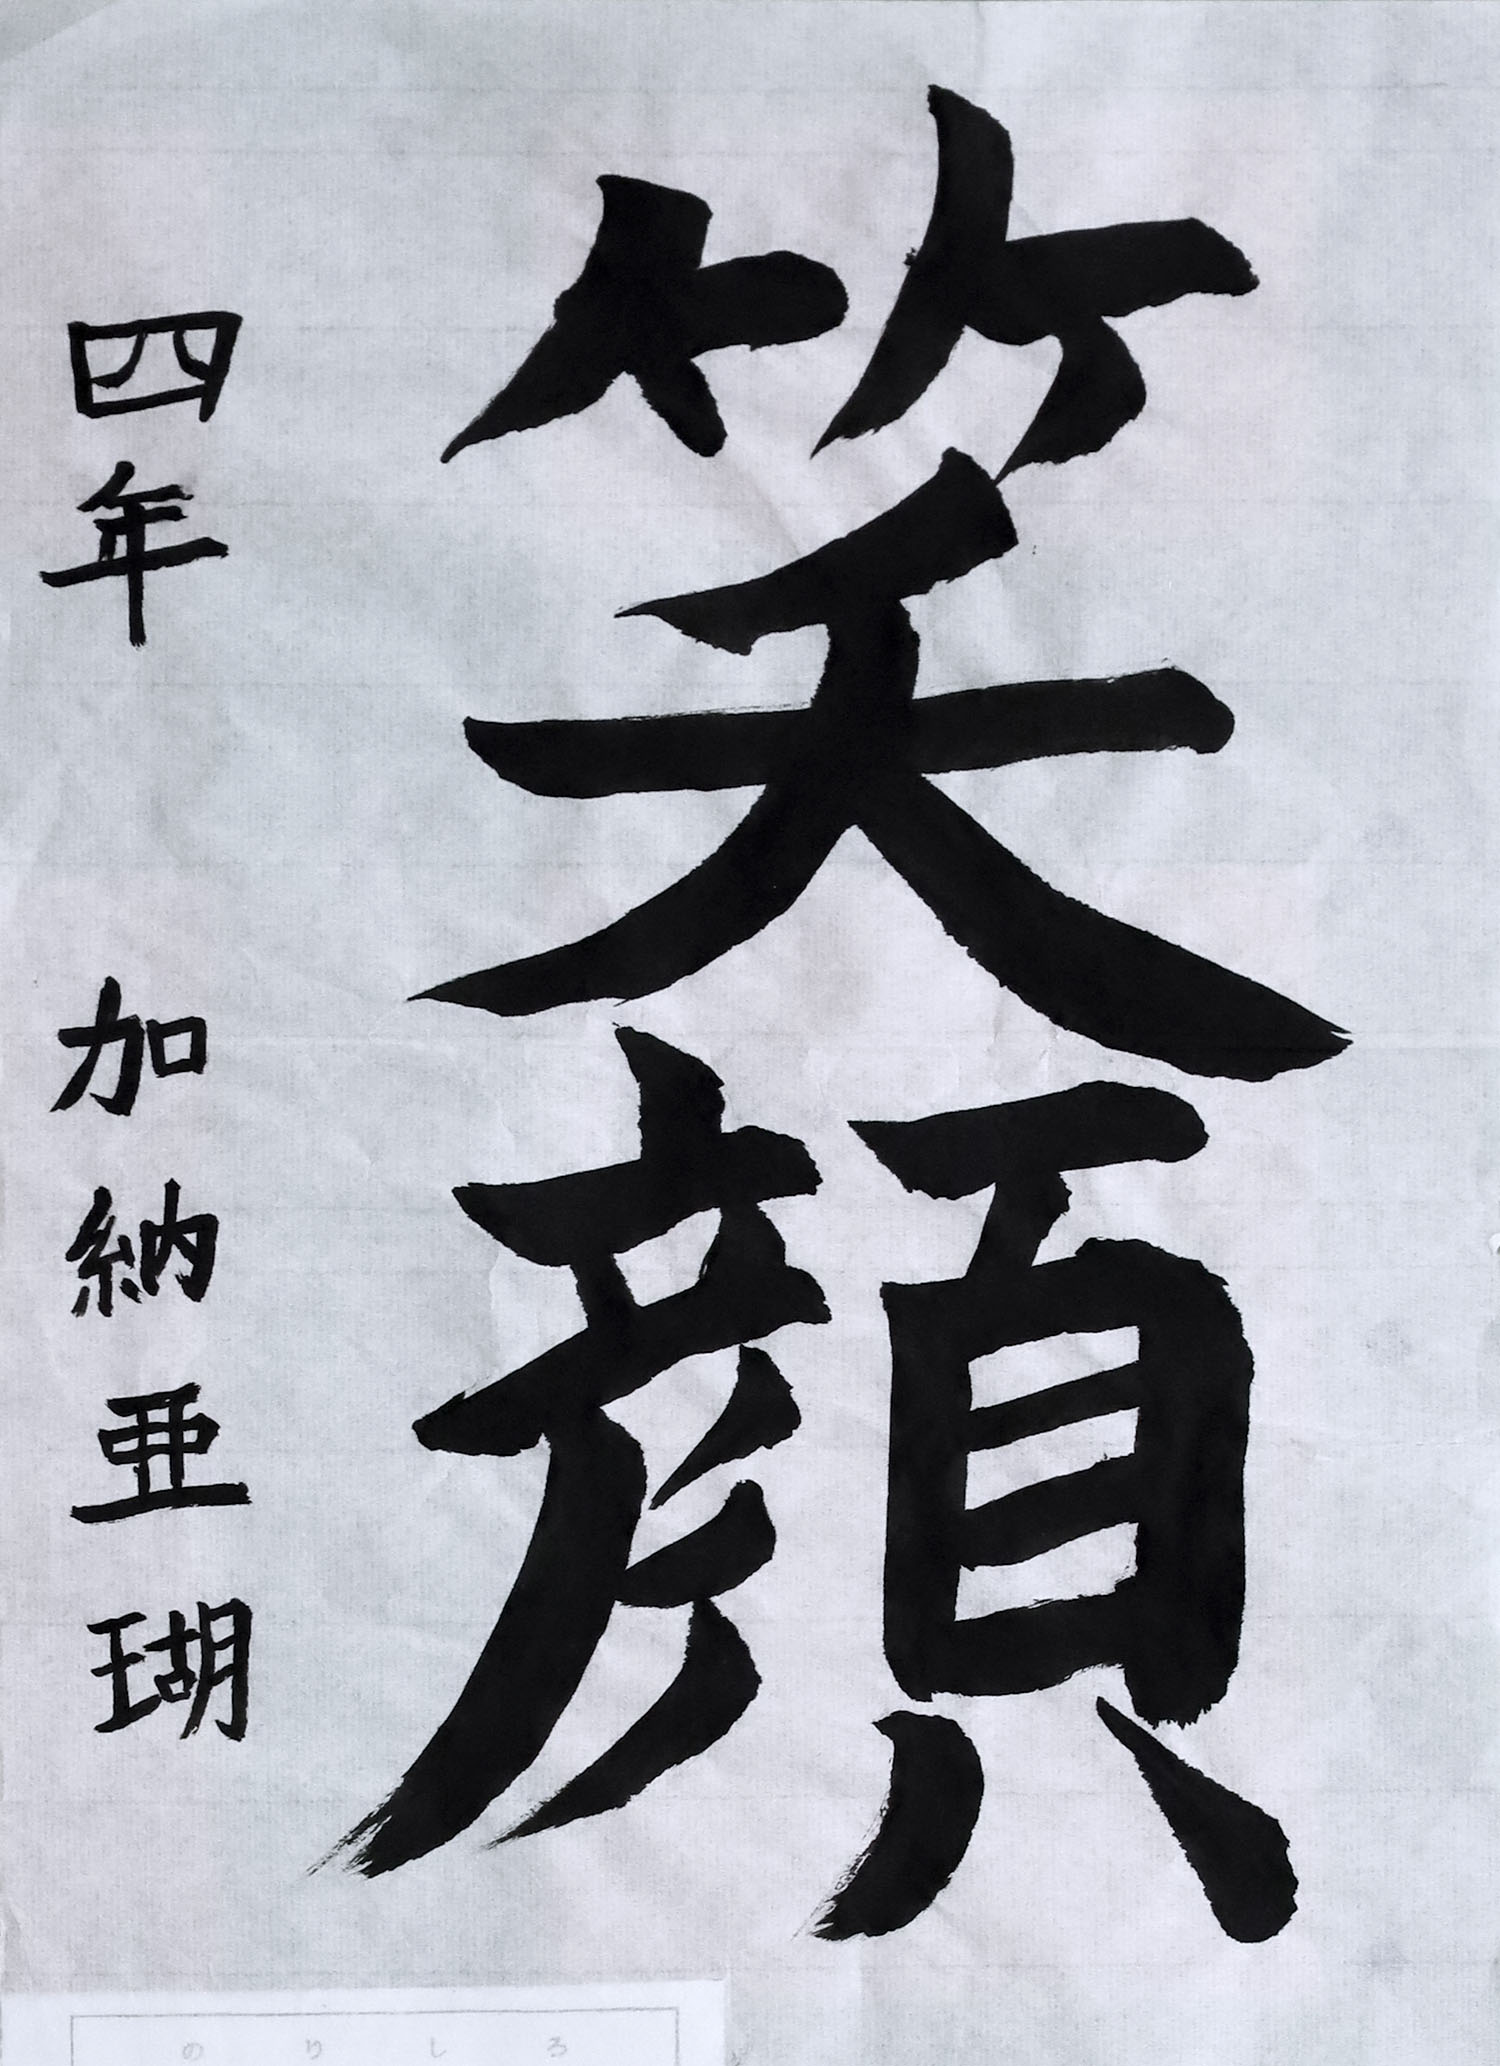 笑顔
四年 加納亜瑚
のりしろ